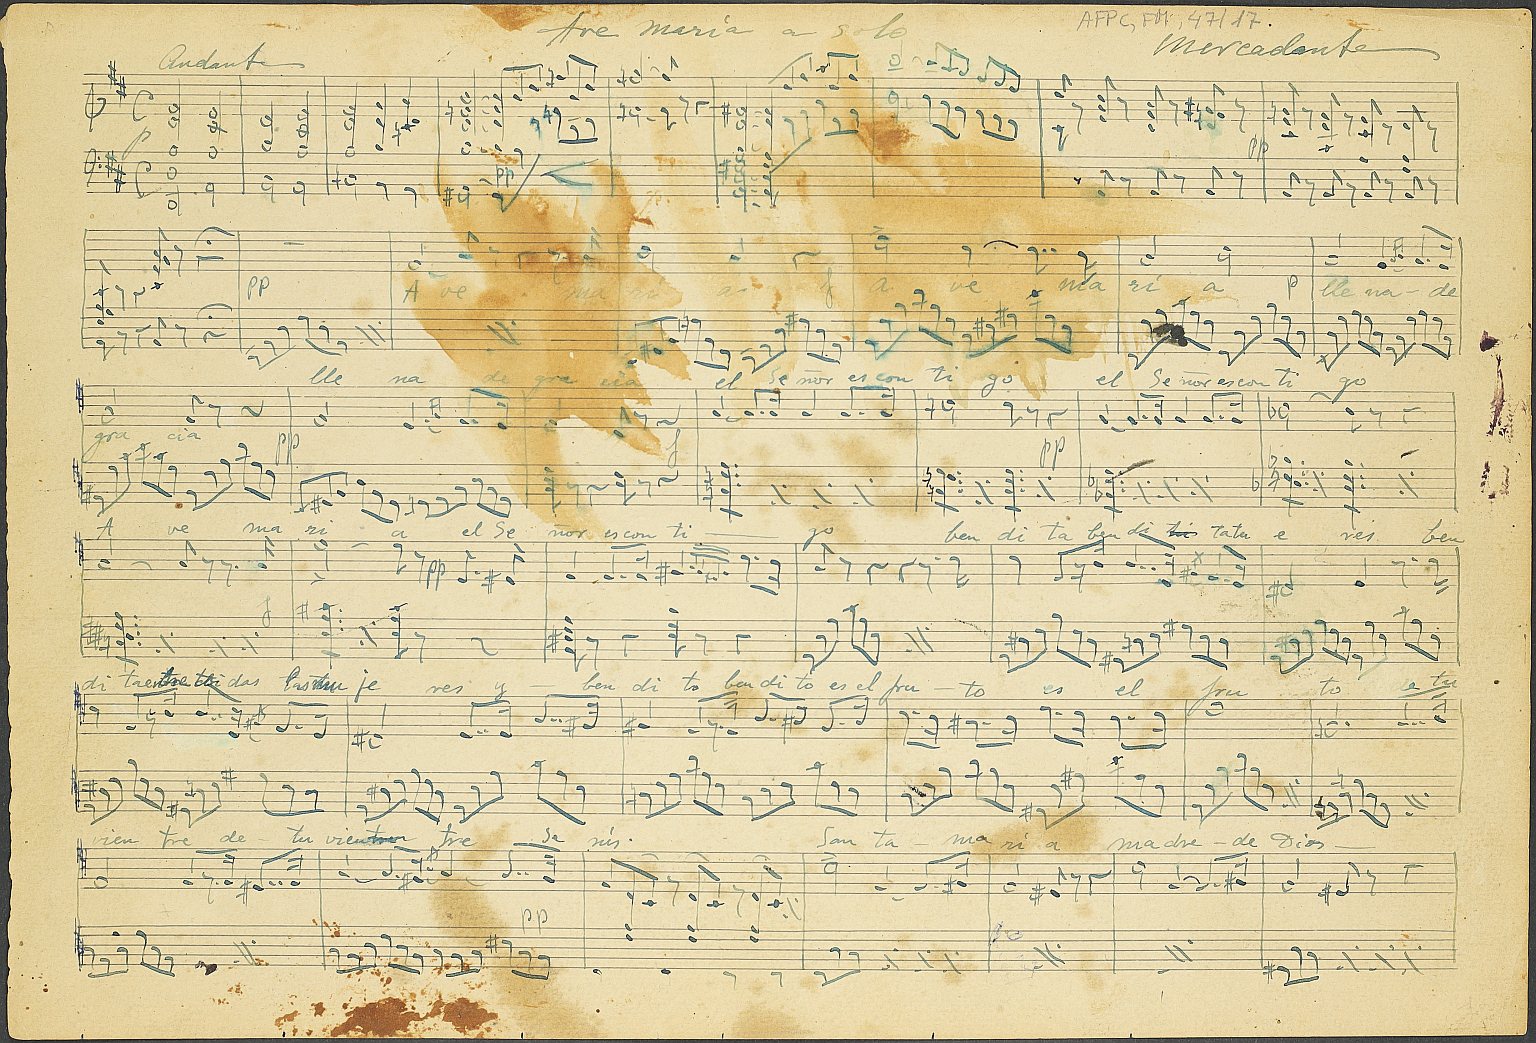 AFPC, FM, 47/17.
Ave maria a solo
Mercadante
Andante
p
pp
pp
pp
A ve ma ri a f a ve ma ri a p lle na - de
lle na de gra cia el Señor es con ti go el Señor es con ti go
gra cia pp f pp
A ve ma ri a el Señor es con ti go ben di ta ben di ta tu e res ben
pp
f
di ta entre todas las mu je res y ben di to ben di to es el fru to es el fru to de tu
vien tre de - tu vien tre Je sús. San ta ma ri a madre - de Dios
p
pp